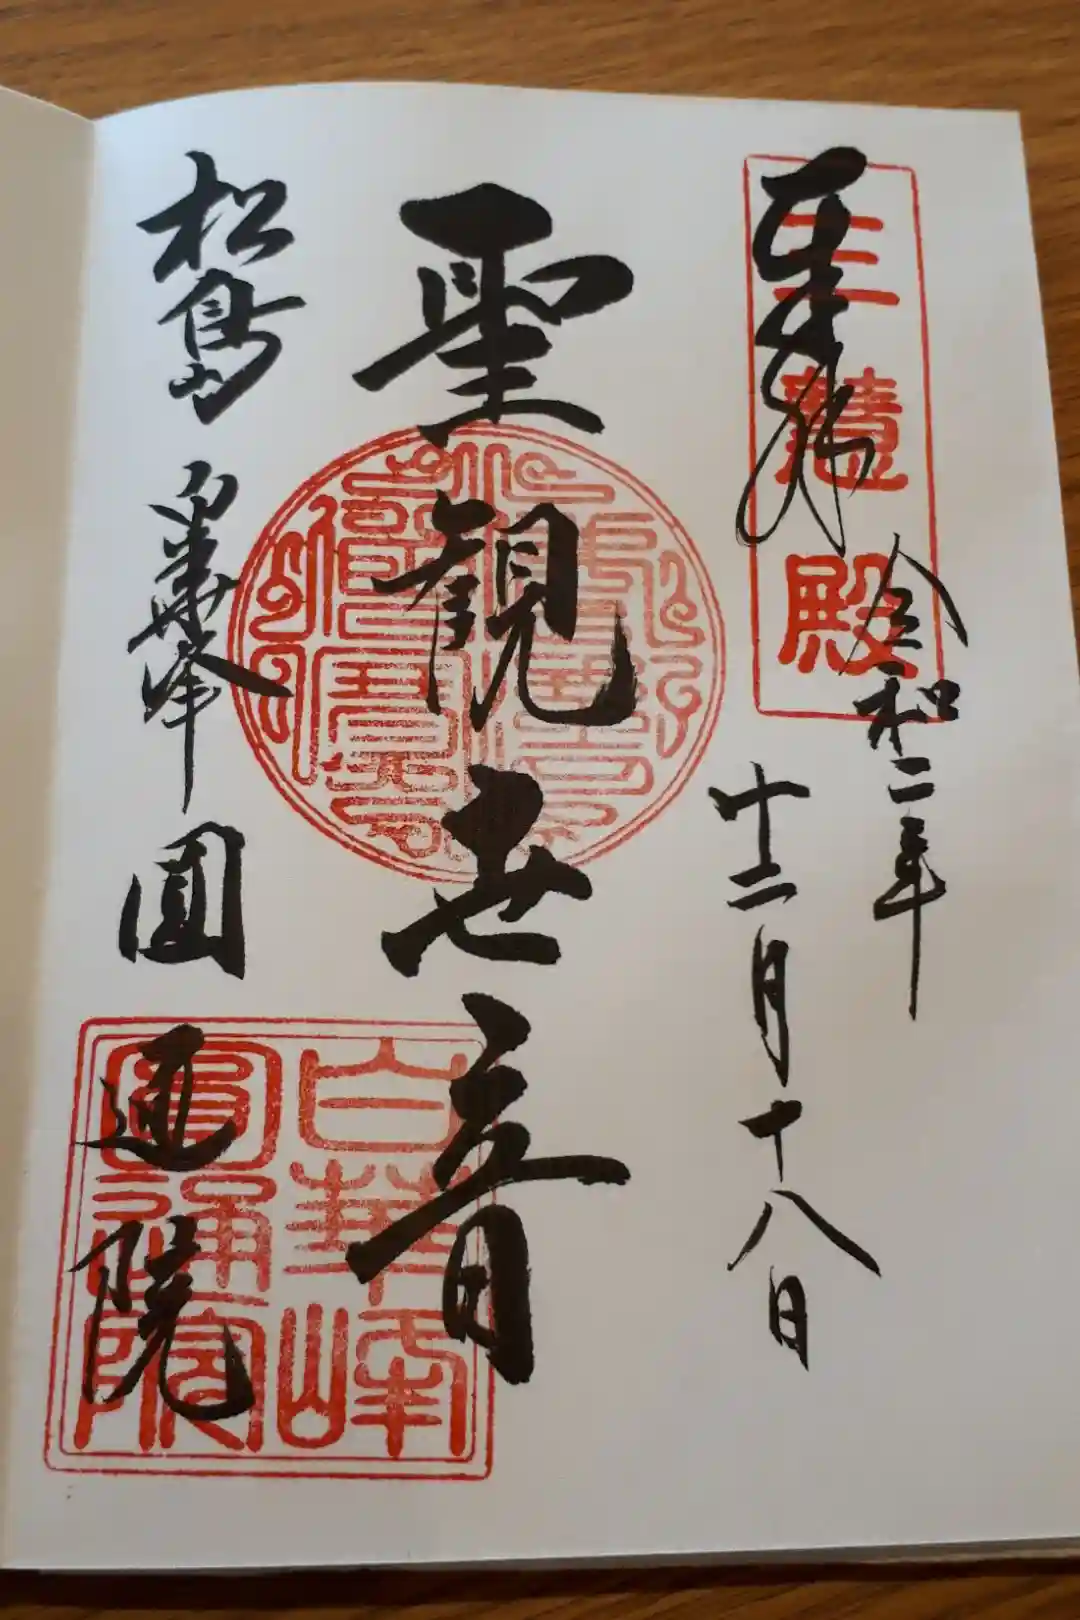 奉拝
三慧殿
令和二年
十二月十八日
聖観世音
松島 白華峰 圓通院
白華峰
圓通院